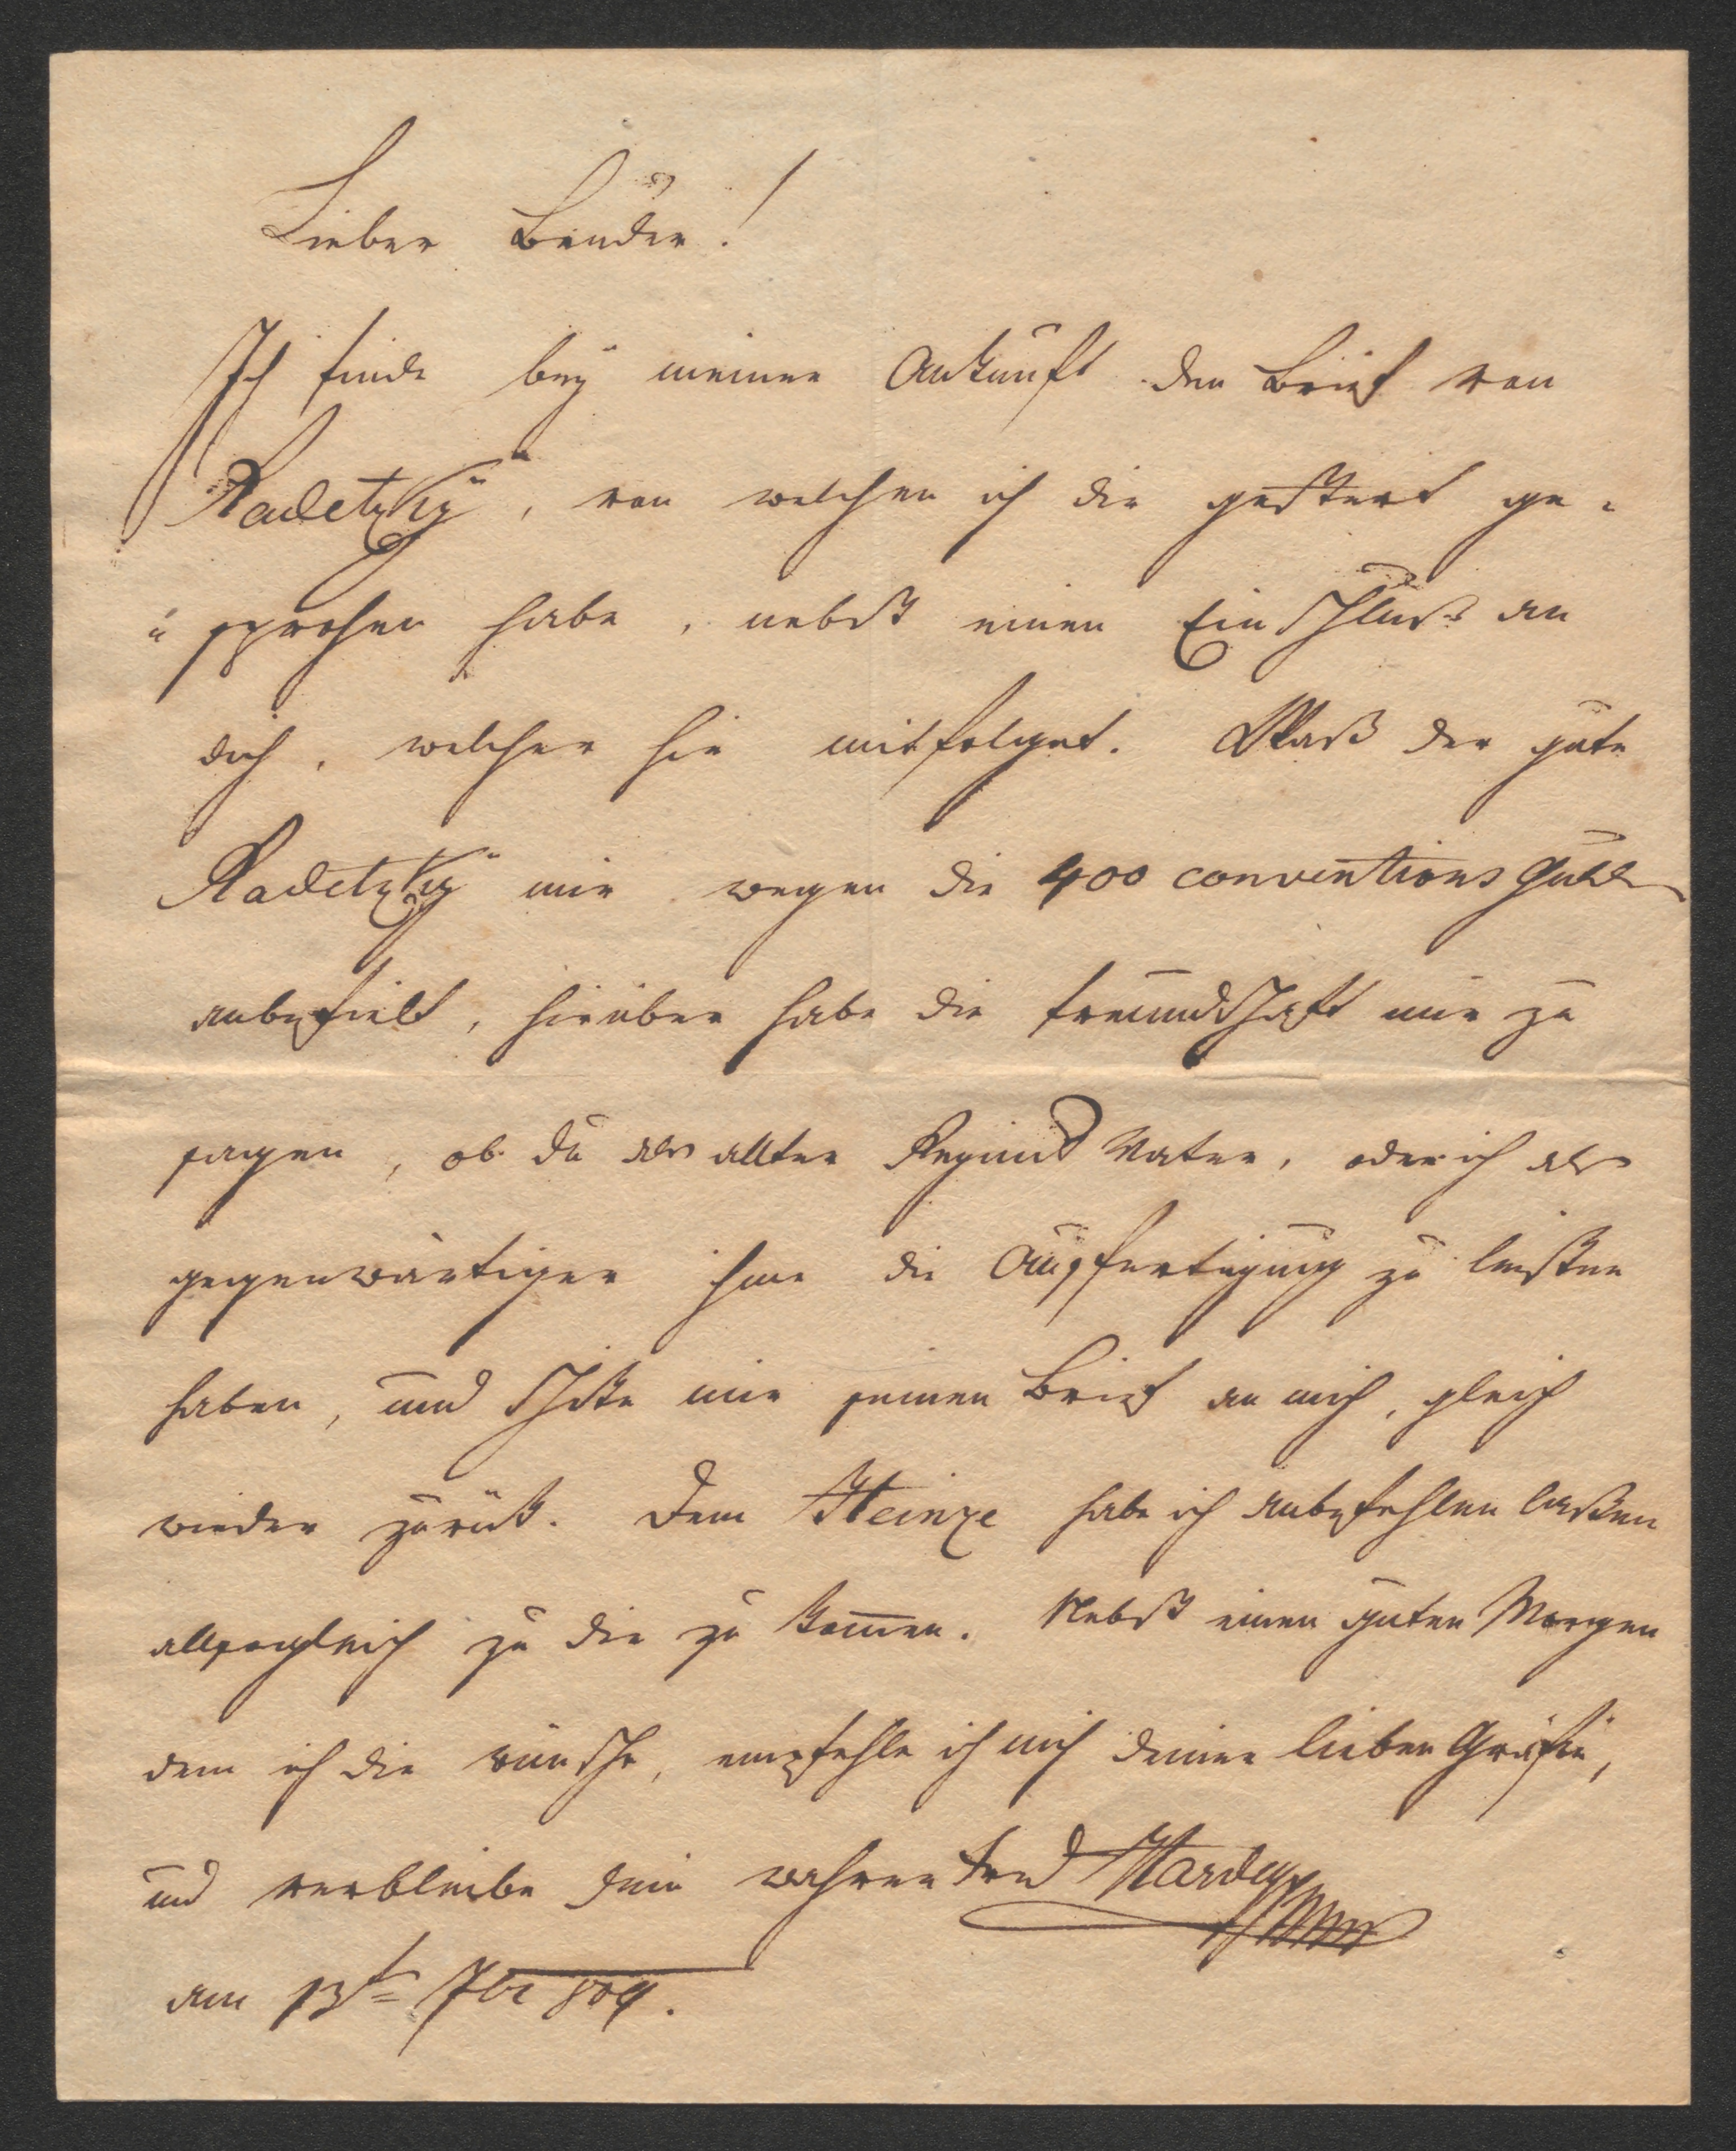 Lieber Bruder!
Ich finde beÿ meiner Ankunft den Brief von
Radetzkÿ, von welchen ich dir gestert ge-
sprochen habe, nebst einen Einschluss an
dich, welcher hie mitfolget. Waß der gute
Radetzkÿ mir wegen die 400 conventions Gulden
anbefielt, hirüber habe die freundschaft mir zu
sagen, ob du als allter Regimts Vater, oder ich als
gegenwärtiger ihme die Ausfertigung zu leisten
haben, und schike mir seinen Brief an mich, gleich
wieder zurük. Dem Heinze habe ich anbefehlen laßen
allsogleich zu dir zu kom̅en. Nebst einen guten Morgen
dem ich dir wünsche, empfehle ich mich deiner lieben Gräfin,
und verbleibe dein wahrer Frd Hardegg
am 13t 7br 809.